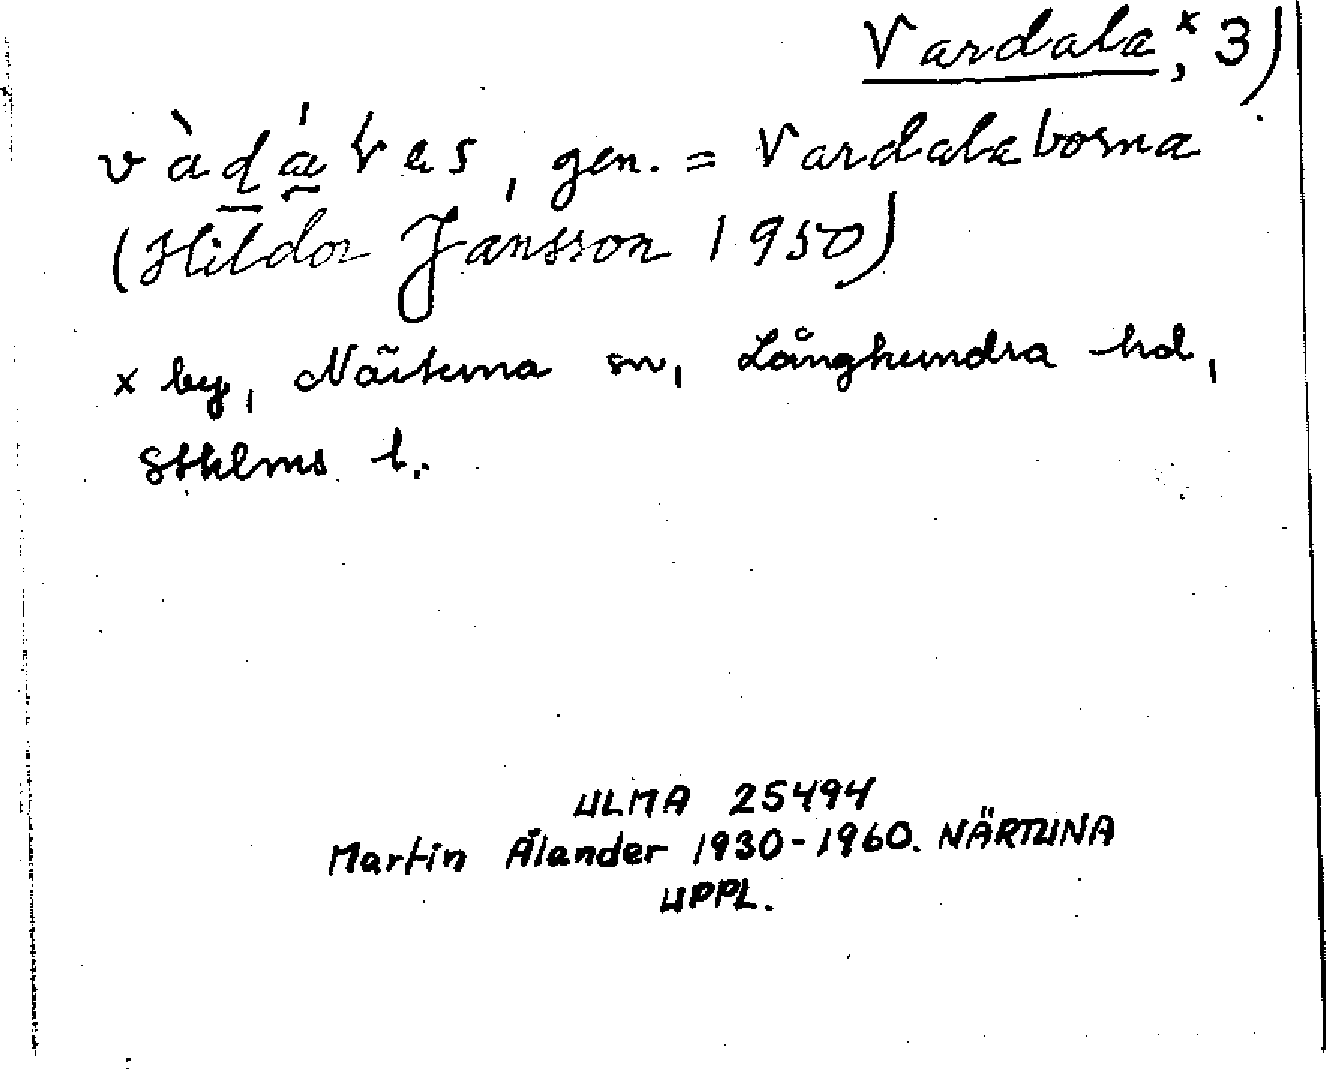 Vardala,ˣ 3)
vàd̲á̰ɽas, gen. = Vardalaborna
(Hildor Jansson 1950)
x by, Närtuna sn, Långhundra hd,
Sthlms l.
ULMA 25494
Martin Ålander 1930-1960. NÄRTUNA
UPPL.